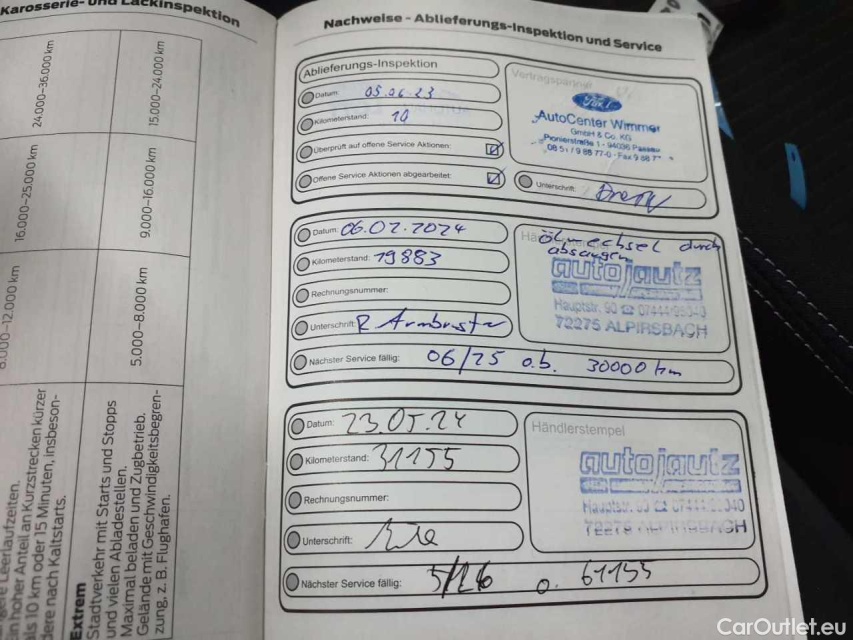 Karosserie- und Lackinspektion
24.000–36.000 km
15.000–24.000 km
16.000–25.000 km
9.000–16.000 km
5.000–8.000 km
Leerlaufzeiten.
hoher Anteil an Kurzstrecken kürzer
als 10 km oder 15 Minuten, insbeson-
dere nach Kaltstarts.
Extrem
Stadtverkehr mit Starts und Stopps
und vielen Abladestellen.
Maximal beladen und Zugbetrieb.
Gelände mit Geschwindigkeitsbegren-
zung, z. B. Flughafen.
Nachweise - Ablieferungs-Inspektion und Service
Ablieferungs-Inspektion
Datum: 05.06.23
Kilometerstand: 10
Überprüft auf offene Service Aktionen:
Offene Service Aktionen abgearbeitet:
Vertragspartner
Ford
AutoCenter Wimmer
GmbH & Co. KG
Pionierstraße 1 - 94036 Passau
Unterschrift:
Datum: 06.02.2024
Kilometerstand: 19883
Rechnungsnummer:
Unterschrift: R Armbruster
Nächster Service fällig: 06/25 o.b. 30000 km
Ölwechsel durch
absaugen
autojautz
72275 ALPIRSBACH
Datum: 23.05.24
Kilometerstand: 31155
Rechnungsnummer:
Unterschrift:
Nächster Service fällig: 5/26 o. 61155
Händlerstempel
autojautz
CarOutlet.eu